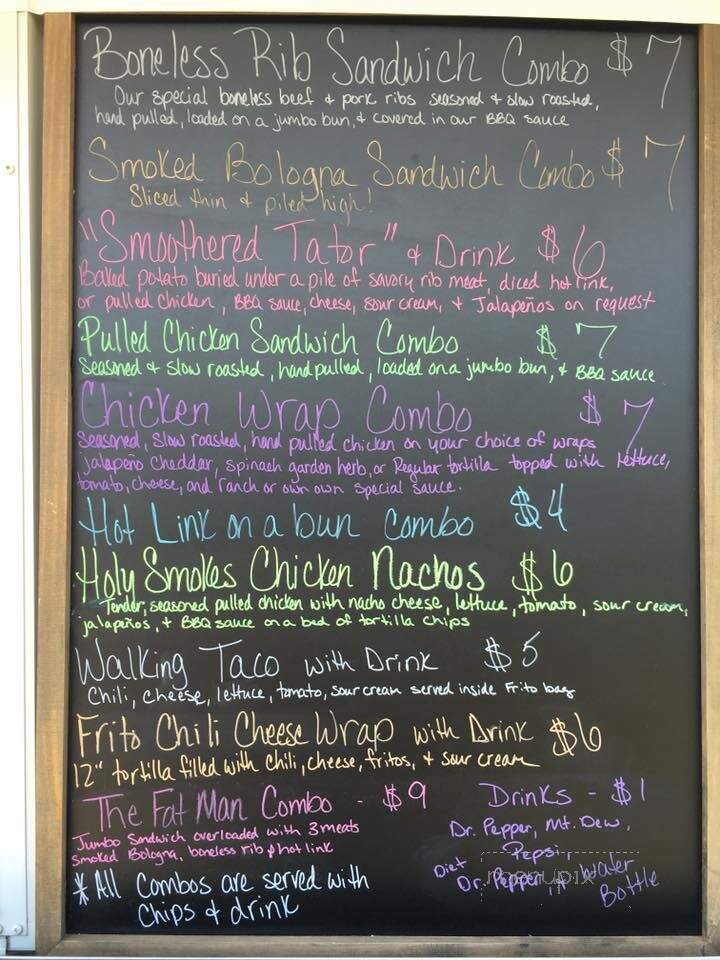 Boneless Rib Sandwich Combo $7
Our special boneless beef & pork ribs seasoned & slow roasted,
hand pulled, loaded on a jumbo bun, & covered in our BBQ sauce
Smoked Bologna Sandwich Combo $7
Sliced thin & piled high!
"Smoothered Tator" & Drink $6
Baked potato buried under a pile of savory rib meat, diced hot link,
or pulled chicken, BBQ sauce, cheese, sour cream, & Jalapeños on request
Pulled Chicken Sandwich Combo $7
Seasoned & slow roasted, hand pulled, loaded on a jumbo bun, & BBQ sauce
Chicken Wrap Combo $7
Seasoned, slow roasted, hand pulled chicken on your choice of wraps
jalapeño cheddar, spinach garden herb, or Regular tortilla topped with lettuce,
tomato, cheese, and ranch or own own special sauce.
Hot Link on a bun combo $4
Holy Smokes Chicken Nachos $6
Tender, seasoned pulled chicken with nacho cheese, lettuce, tomato, sour cream,
jalapeños, & BBQ sauce on a bed of tortilla chips
Walking Taco with Drink $5
Chili, cheese, lettuce, tomato, sour cream served inside Frito bag
Frito Chili Cheese Wrap with Drink $6
12" tortilla filled with chili, cheese, fritos, & sour cream
The Fat Man Combo - $9
Jumbo Sandwich overloaded with 3 meats
Smoked Bologna, boneless rib & hot link
* All Combos are served with
Chips & drink
Drinks - $1
Dr. Pepper, Mt. Dew,
Pepsi,
Diet Dr. Pepper, & Water
Bottle
menupix